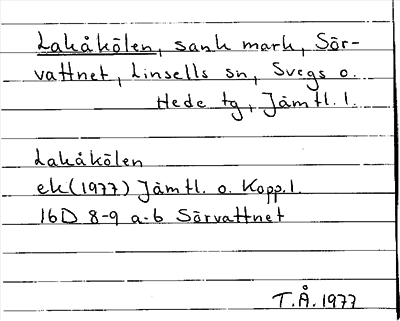 Lakåkölen, sank mark, Sör-
vattnet, Linsells sn, Svegs o.
Hede tg, Jämtl. l.
Lakåkölen
ek (1977) Jämtl. o. Kopp. l.
16D 8-9 a-b Sörvattnet
T.Å. 1977